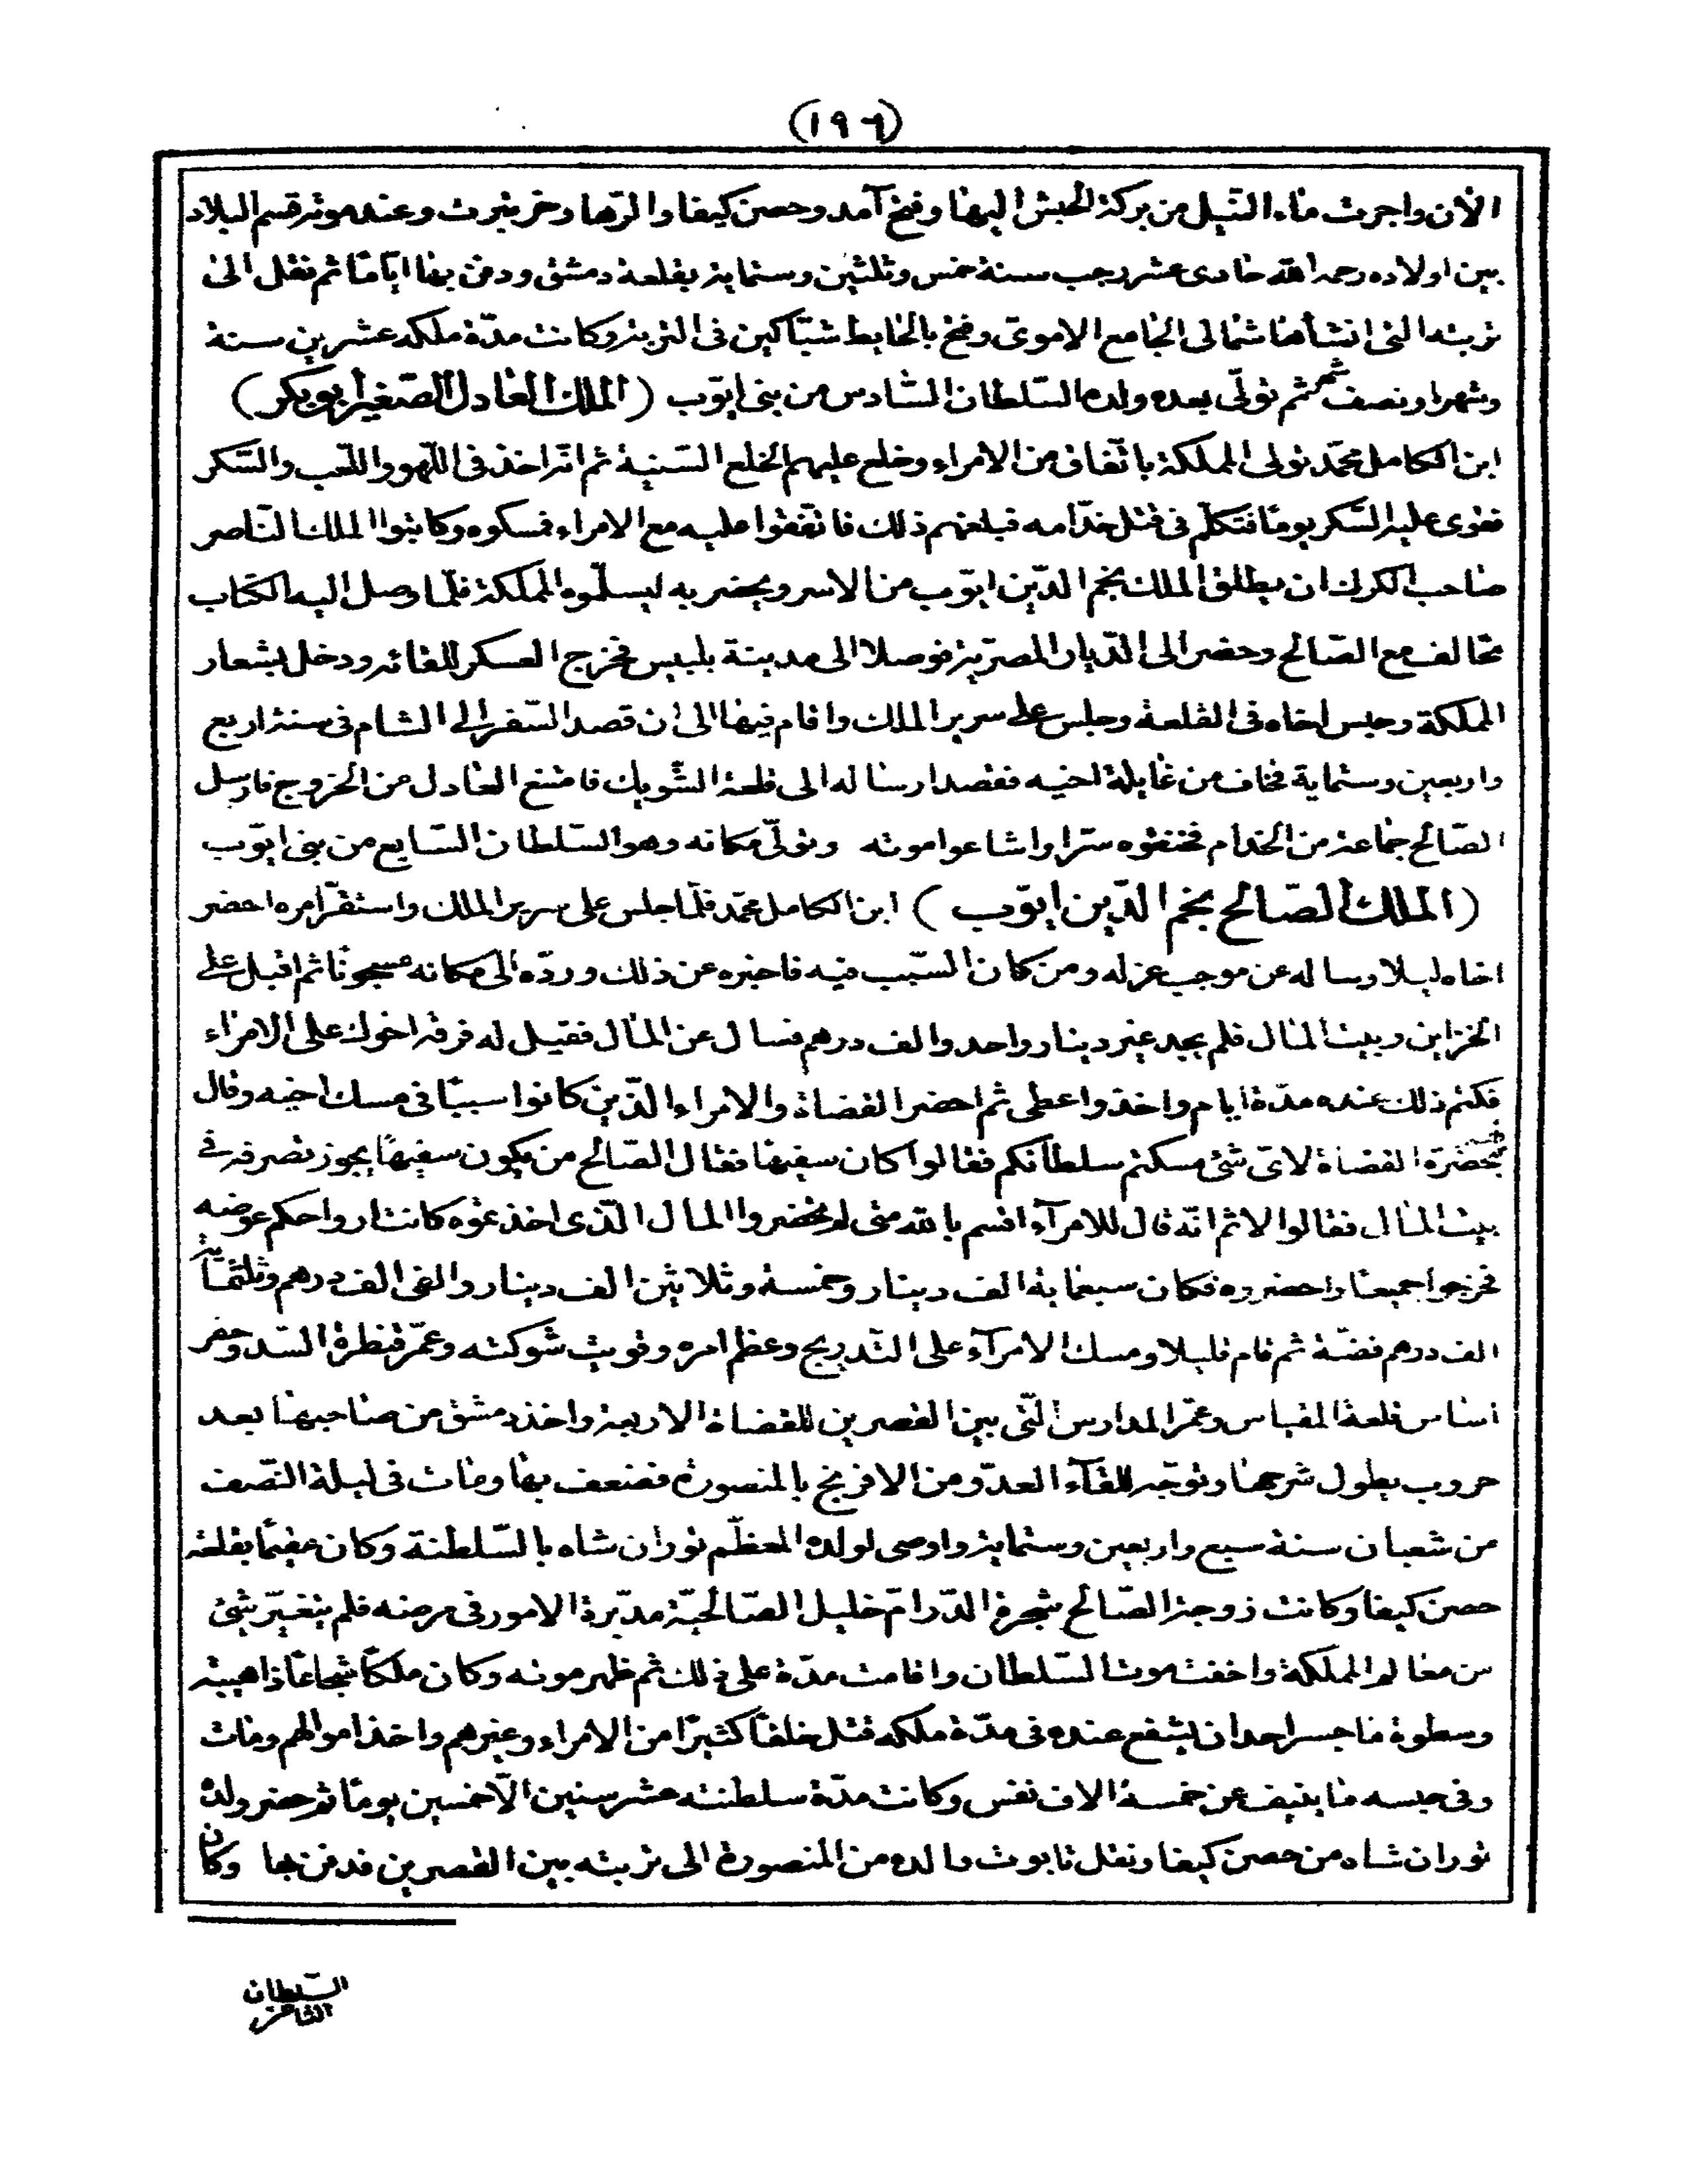 (١٩٦)
الآن واجرت ماء النيل من بركة الحبش اليها وفتح آمد وحصن كيفا والرّها وخرتبرت وعند موته قسم البلاد
بين اولاده رحمه الله حادى عشر رجب سنة خمس وثلثين وستماية بقلعة دمشق ودفن بها ايّامًا ثم نقل الى
تربته التى انشأها شمالى الجامع الاموىّ وفتح بالحايط شبّاكين فى التربة وكانت مدّة ملكه عشرين سنة
وشهرا ونصف شهر ثم تولّى بعده ولده السّلطان السّادس من بنى ايّوب (الملك العادل الصّغير أبو بكر)
ابن الكامل محمّد تولى المملكة باتّفاق من الامراء وخلع عليهم الخلع السّنية ثم انّه اخذ فى اللّهو واللّعب والسّكر
فقوى عليه السّكر يومًا فتكلّم فى قتل خدّامه فبلغهم ذلك فاتّفقوا عليه مع الامراء فمسكوه وكاتبوا الملك النّاصر
صاحب الكرك ان يطلق الملك نجم الدّين ايّوب من الاسر ويحضر به ليسلّموه المملكة فلمّا وصل اليه الكتاب
تحالف مع الصّالح وحضر الى الدّيار المصريّة فوصلا الى مدينة بلبيس فخرج العسكر للقائه ودخل بشعار
المملكة وحبس اخاه فى القلعة وجلس على سرير الملك واقام فيها الى ان قصد السّفر الى الشام فى سنة اربع
واربعين وستماية فخاف من غايلة اخيه فقصد ارساله الى قلعة الشّوبك فامتنع العادل من الخروج فارسل
الصّالح جماعة من الخدام فخنقوه سرّا واشاعوا موته وتولّى مكانه وهو السّلطان السّابع من بنى ايّوب
(الملك الصّالح نجم الدّين ايّوب) ابن الكامل محمّد فلمّا جلس على سرير الملك واستقرّ امره احضر
اخاه ليلا وساله عن موجب عزله ومن كان السّبب فيه فاخبره عن ذلك وردّه الى مكانه مسجونًا ثم اقبل على
الخزاين وبيت المال فلم يجد غير دينار واحد والف درهم فسال عن المال فقيل له فرقه اخوك على الامراء
فكتم ذلك عنده مدّة ايام واخذ واعطى ثم احضر القضاة والامراء الّذين كانوا سببًا فى مسك اخيه وقال
بحضرة القضاة لاىّ شئ مسكتم سلطانكم فقالوا كان سفيها فقال الصّالح من يكون سفيهًا يجوز تصرفه فى
بيت المال فقالوا لا ثم انّه قال للامرآء اقسم بالله متى لم تحضروا المال الّذى اخذتموه كانت ارواحكم عوضه
فخرجوا جميعا واحضروه فكان سبعماية الف دينار وخمسة وثلاثين الف دينار والفى الف درهم وثلثمآية
الف درهم فضّة ثم قام قليلا ومسك الامرآء على التّدريج وعظم امره وقويت شوكته وعمّر قنطرة السّد وحفر
اساس قلعة المقياس وعمّر المدارس الّتى بين القصرين للقضاة الاربعة واخذ دمشق من صاحبها بعد
حروب يطول شرحها وتوجّه للقآء العدّو من الافرنج بالمنصورة فضعف بها ومات فى ليلة النّصف
من شعبان سنة سبع واربعين وستماية واوصى لولده المعظّم توران شاه بالسّلطنة وكان مقيمًا بقلعة
حصن كيفا وكانت زوجة الصّالح شجرة الدّر امّ خليل الصّالحيّة مدبّرة الامور فى مرضه فلم يتغيّر شئ
من معالم المملكة واخفت موت السّلطان واقامت مدّة على ذلك ثم ظهر موته وكان ملكًا شجاعًا ذا هيبة
وسطوة ما جسر احد ان يشفع عنده فى مدّة ملكه قتل خلقًا كثيرًا من الامراء وغيرهم واخذ اموالهم ومات
وفى حبسه ما ينيف عن خمسة الاف نفس وكانت مدّة سلطنته عشر سنين الّا خمسين يومًا ثم حضر ولده
توران شاه من حصن كيفا ونقل تابوت والده من المنصورة الى تربته بين القصرين فدفن بها وكان
السّلطان